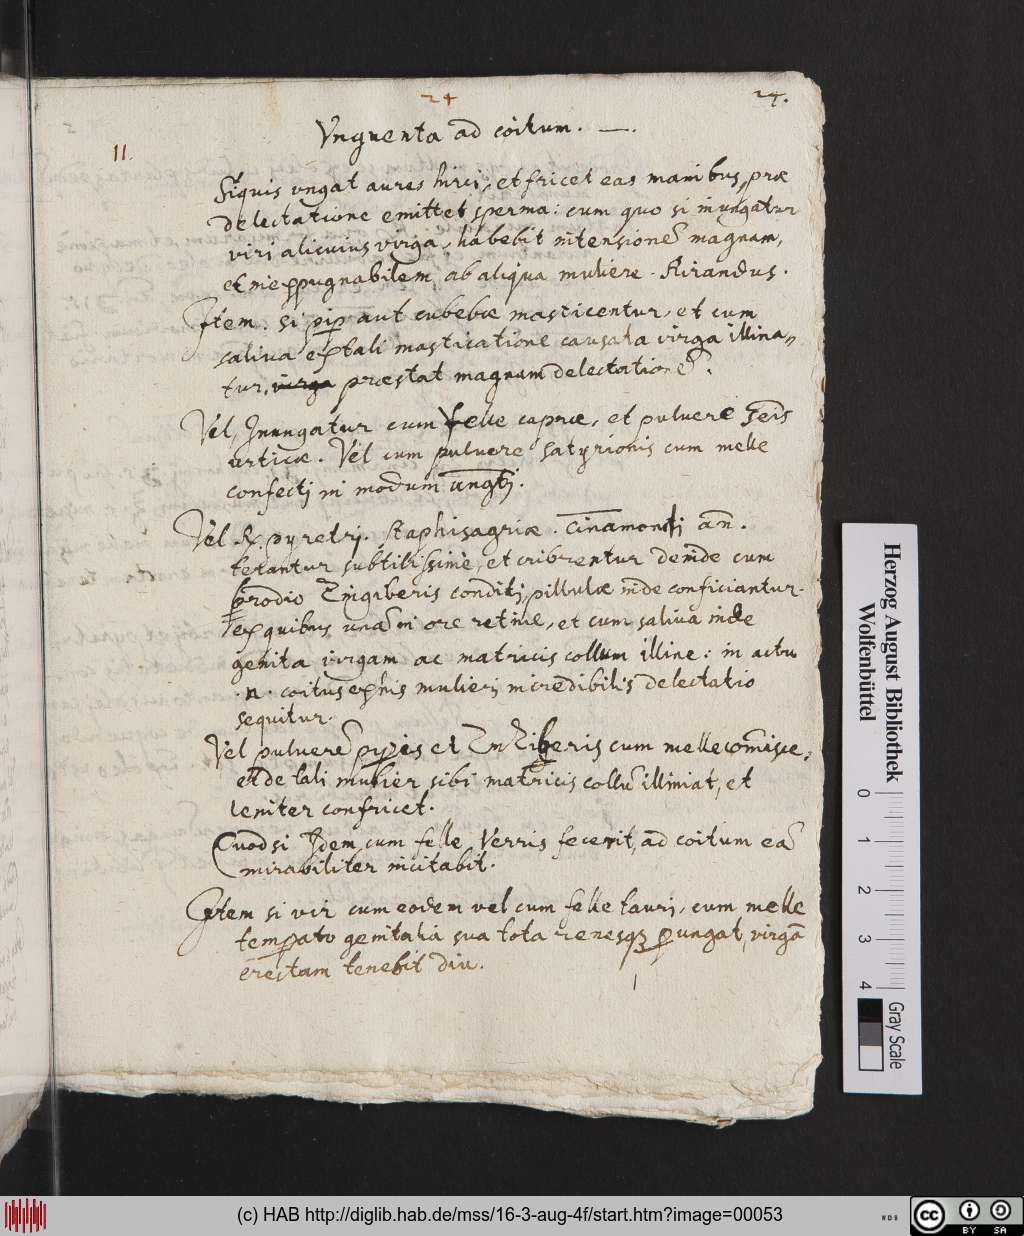 24 24.
Vnguenta ad coitum. —.
11.
Siquis vngat aures hirci, et fricet eas manibus, præ
delectatione emittet sperma: cum quo si inungatur
viri alicuius virga, habebit intensionē magnam,
et inexpugnabilem ab aliqua muliere. Mirandus.
Item. si pip aut cubebæ masticentur, et cum
saliua ex tali masticatione causata virga illina„
tur, virga præstat magnam delectationē.
Vel, Inungatur cum felle capræ, et puluere seis
urticæ. Vel cum puluere satyrionis cum melle
confectj in modum ungtj.
Vel ℞. pyretrj. staphisagriæ. Cinamomj an̄.
terantur subtilissimè, et cribrentur deinde cum
brodio Zingiberis conditj, pillulæ inde conficiantur.
ex quibus unā in ore retine, et cum saliua inde
genita virgam ac matricis collum illine: in actu
.n. coitus ex his mulierj incredibilis delectatio
sequitur.
Vel puluerē pipis et Zinziberis cum melle comisce,
et de tali mulier sibi matricis collū illiniat, et
leniter confricet.
Quod si Idem, cum felle Verris fecerit, ad coitum eā
mirabiliter incitabit.
Item si vir cum eodem vel cum felle taurj, cum melle
tempato genitalia sua tota renesqꝫ pungat, virgā
erectam tenebit diu.
Herzog August Bibliothek
Wolfenbüttel
0 1 2 3 4
Gray Scale
(c) HAB http://diglib.hab.de/mss/16-3-aug-4f/start.htm?image=00053
WDB
cc BY SA